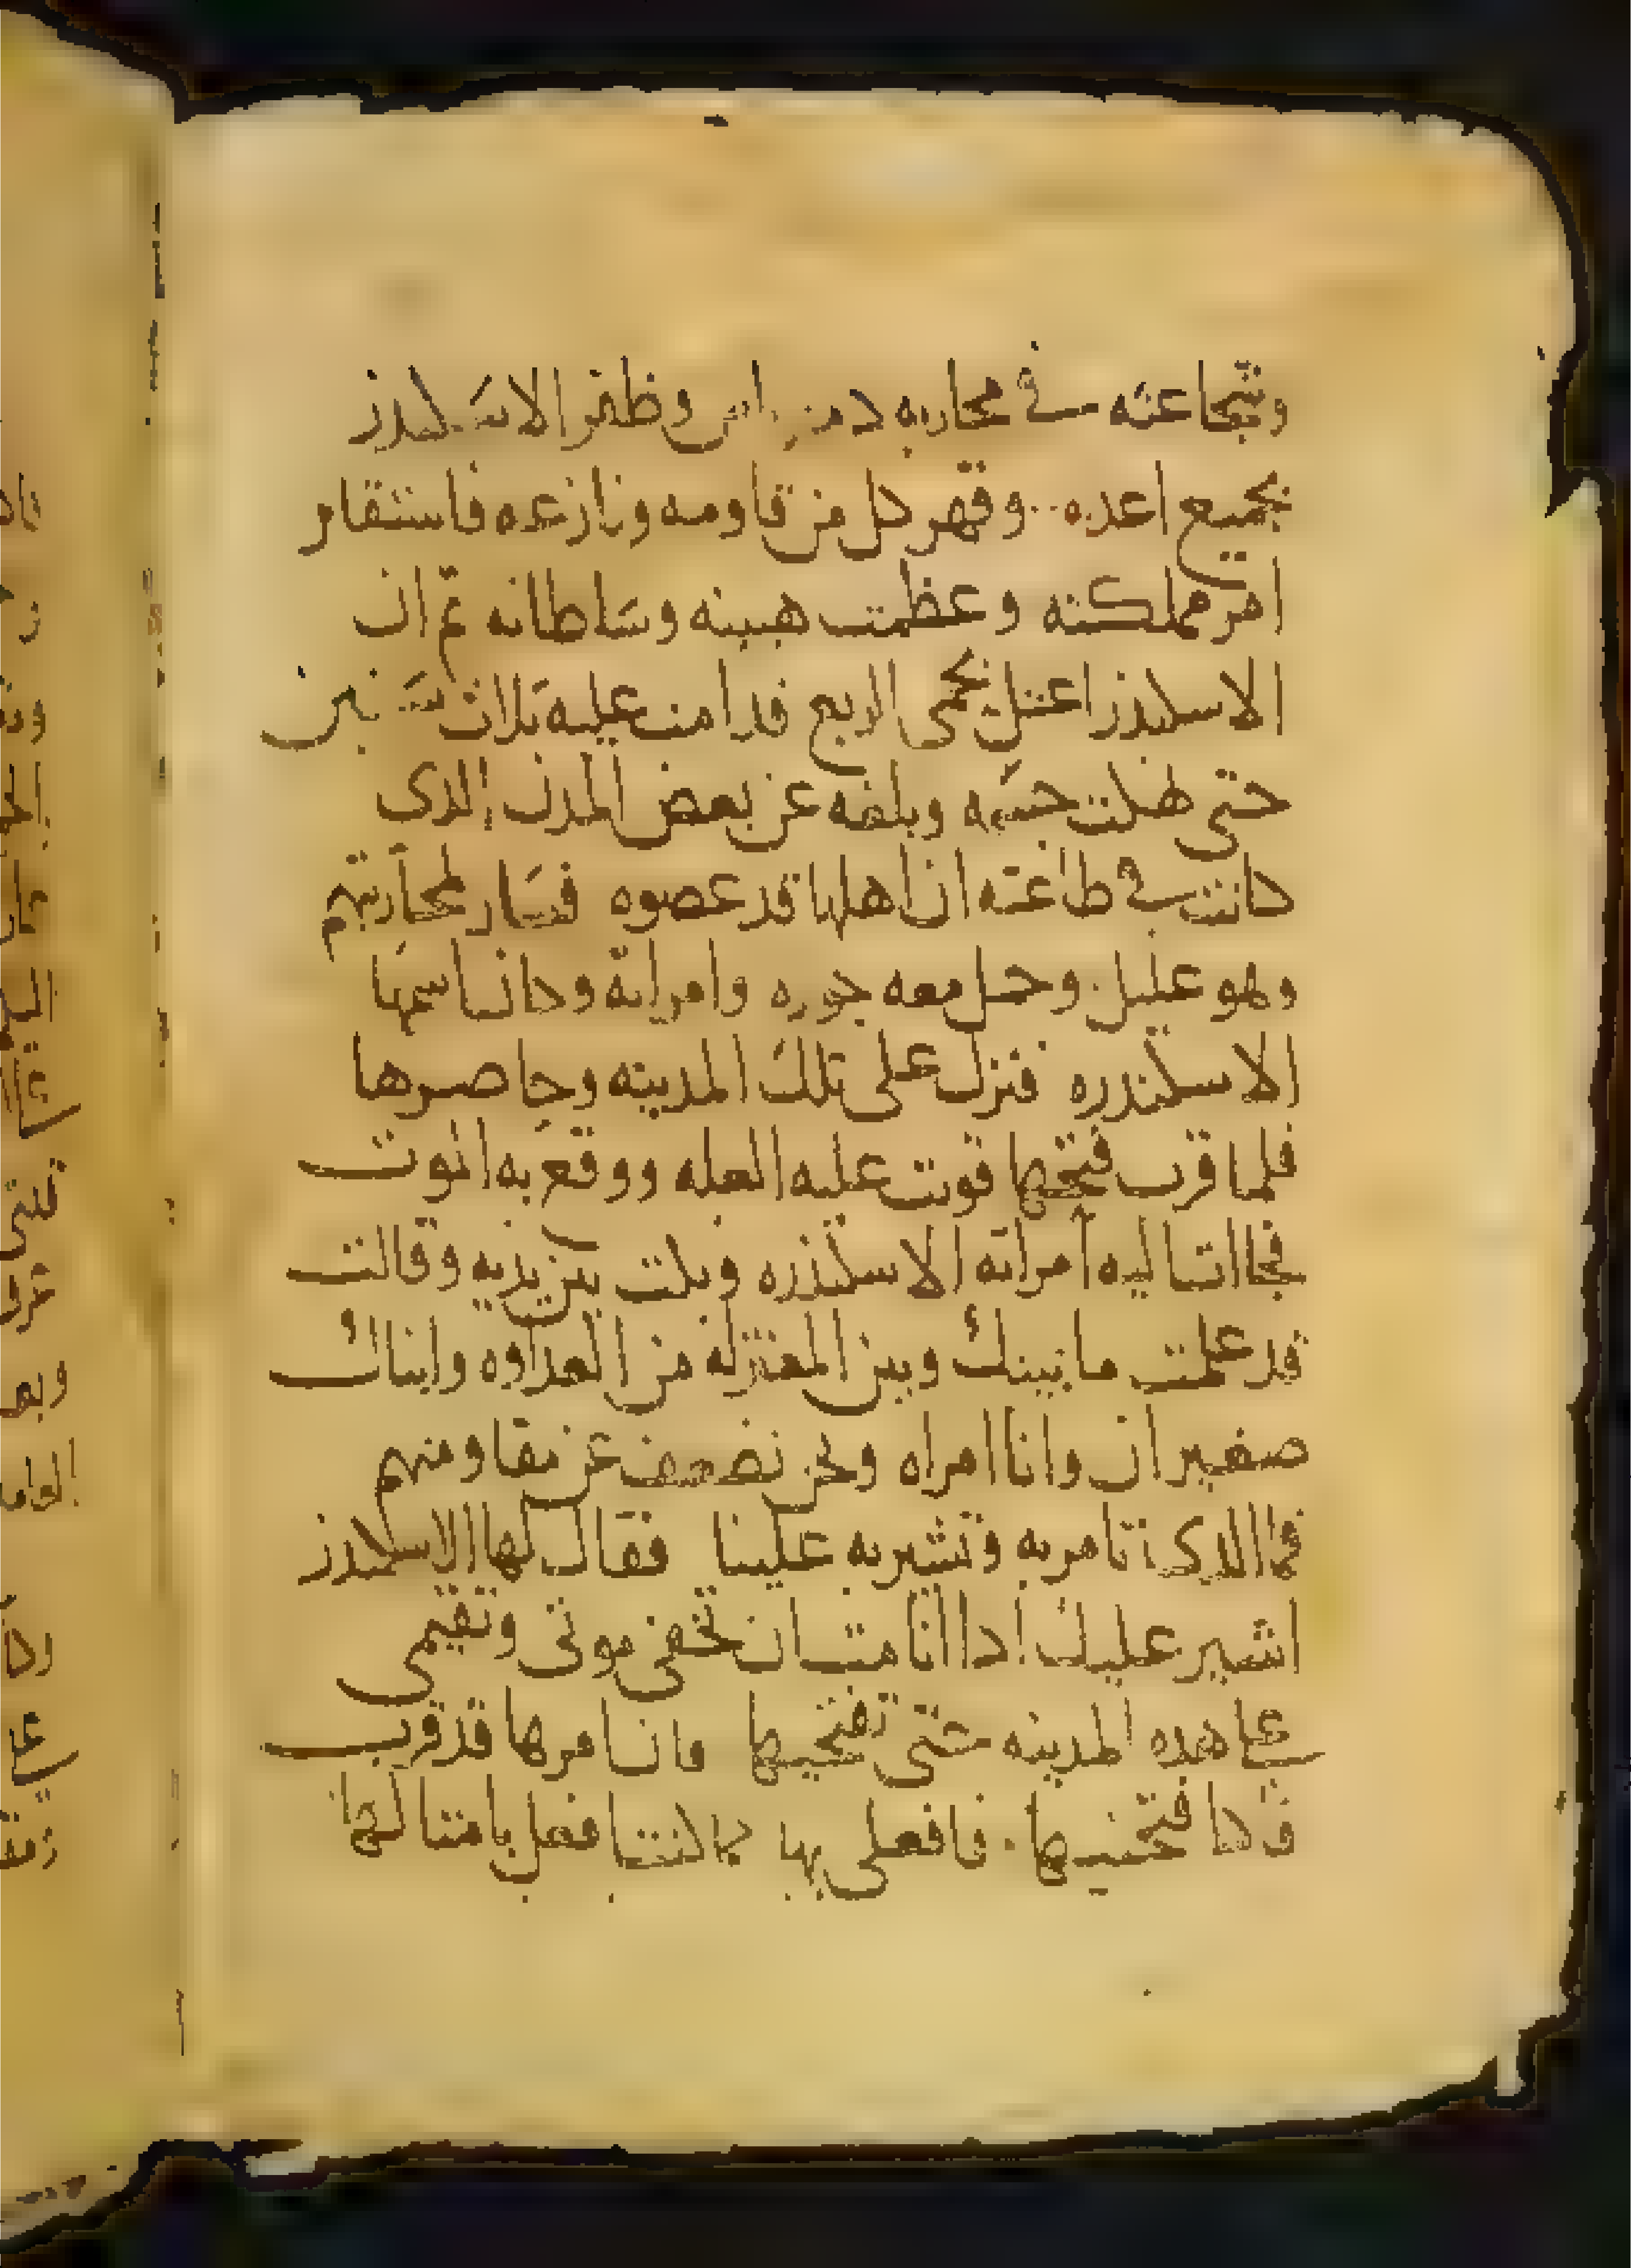 وشجاعته في محاربه وظفر الاسكندر
بجميع اعداه وقهر كل من قاومه ونازعه فاستقام
امر مملكته وعظمت هيبته وسلطانه ثم ان
الاسكندر اعتل بحمى الربع فدامت عليه ثلاث سنين
حتى جسمه وبلغه عن بعض المدن الدى
كانت في طاعته ان اهلها قد عصوه فسار لمحاربتهم
وهو عليل وحمل معه وامراته وكان اسمها
الاسكندره فنزل على تلك المدينه وحاصرها
فلما قرب فتحها قويت عليه العله ووقع به الموت
فجاات اليه امراته الاسكندره وبكت بين يديه وقالت
قد علمت ما بينك وبين المعتزله من العداوه وابناك
صغيران وانا امراه ونحن نضعف عن مقاومتهم
فما الدى تامر به وتشير به علينا فقال لها الاسكندر
اشير عليك ادا انا مت ان تخفى موتى وتقيمى
على هده المدينه حتى تفتحيها فان امرها قد قرب
فادا فتحتيها فافعلى بها كما كنت افعل بامثالها